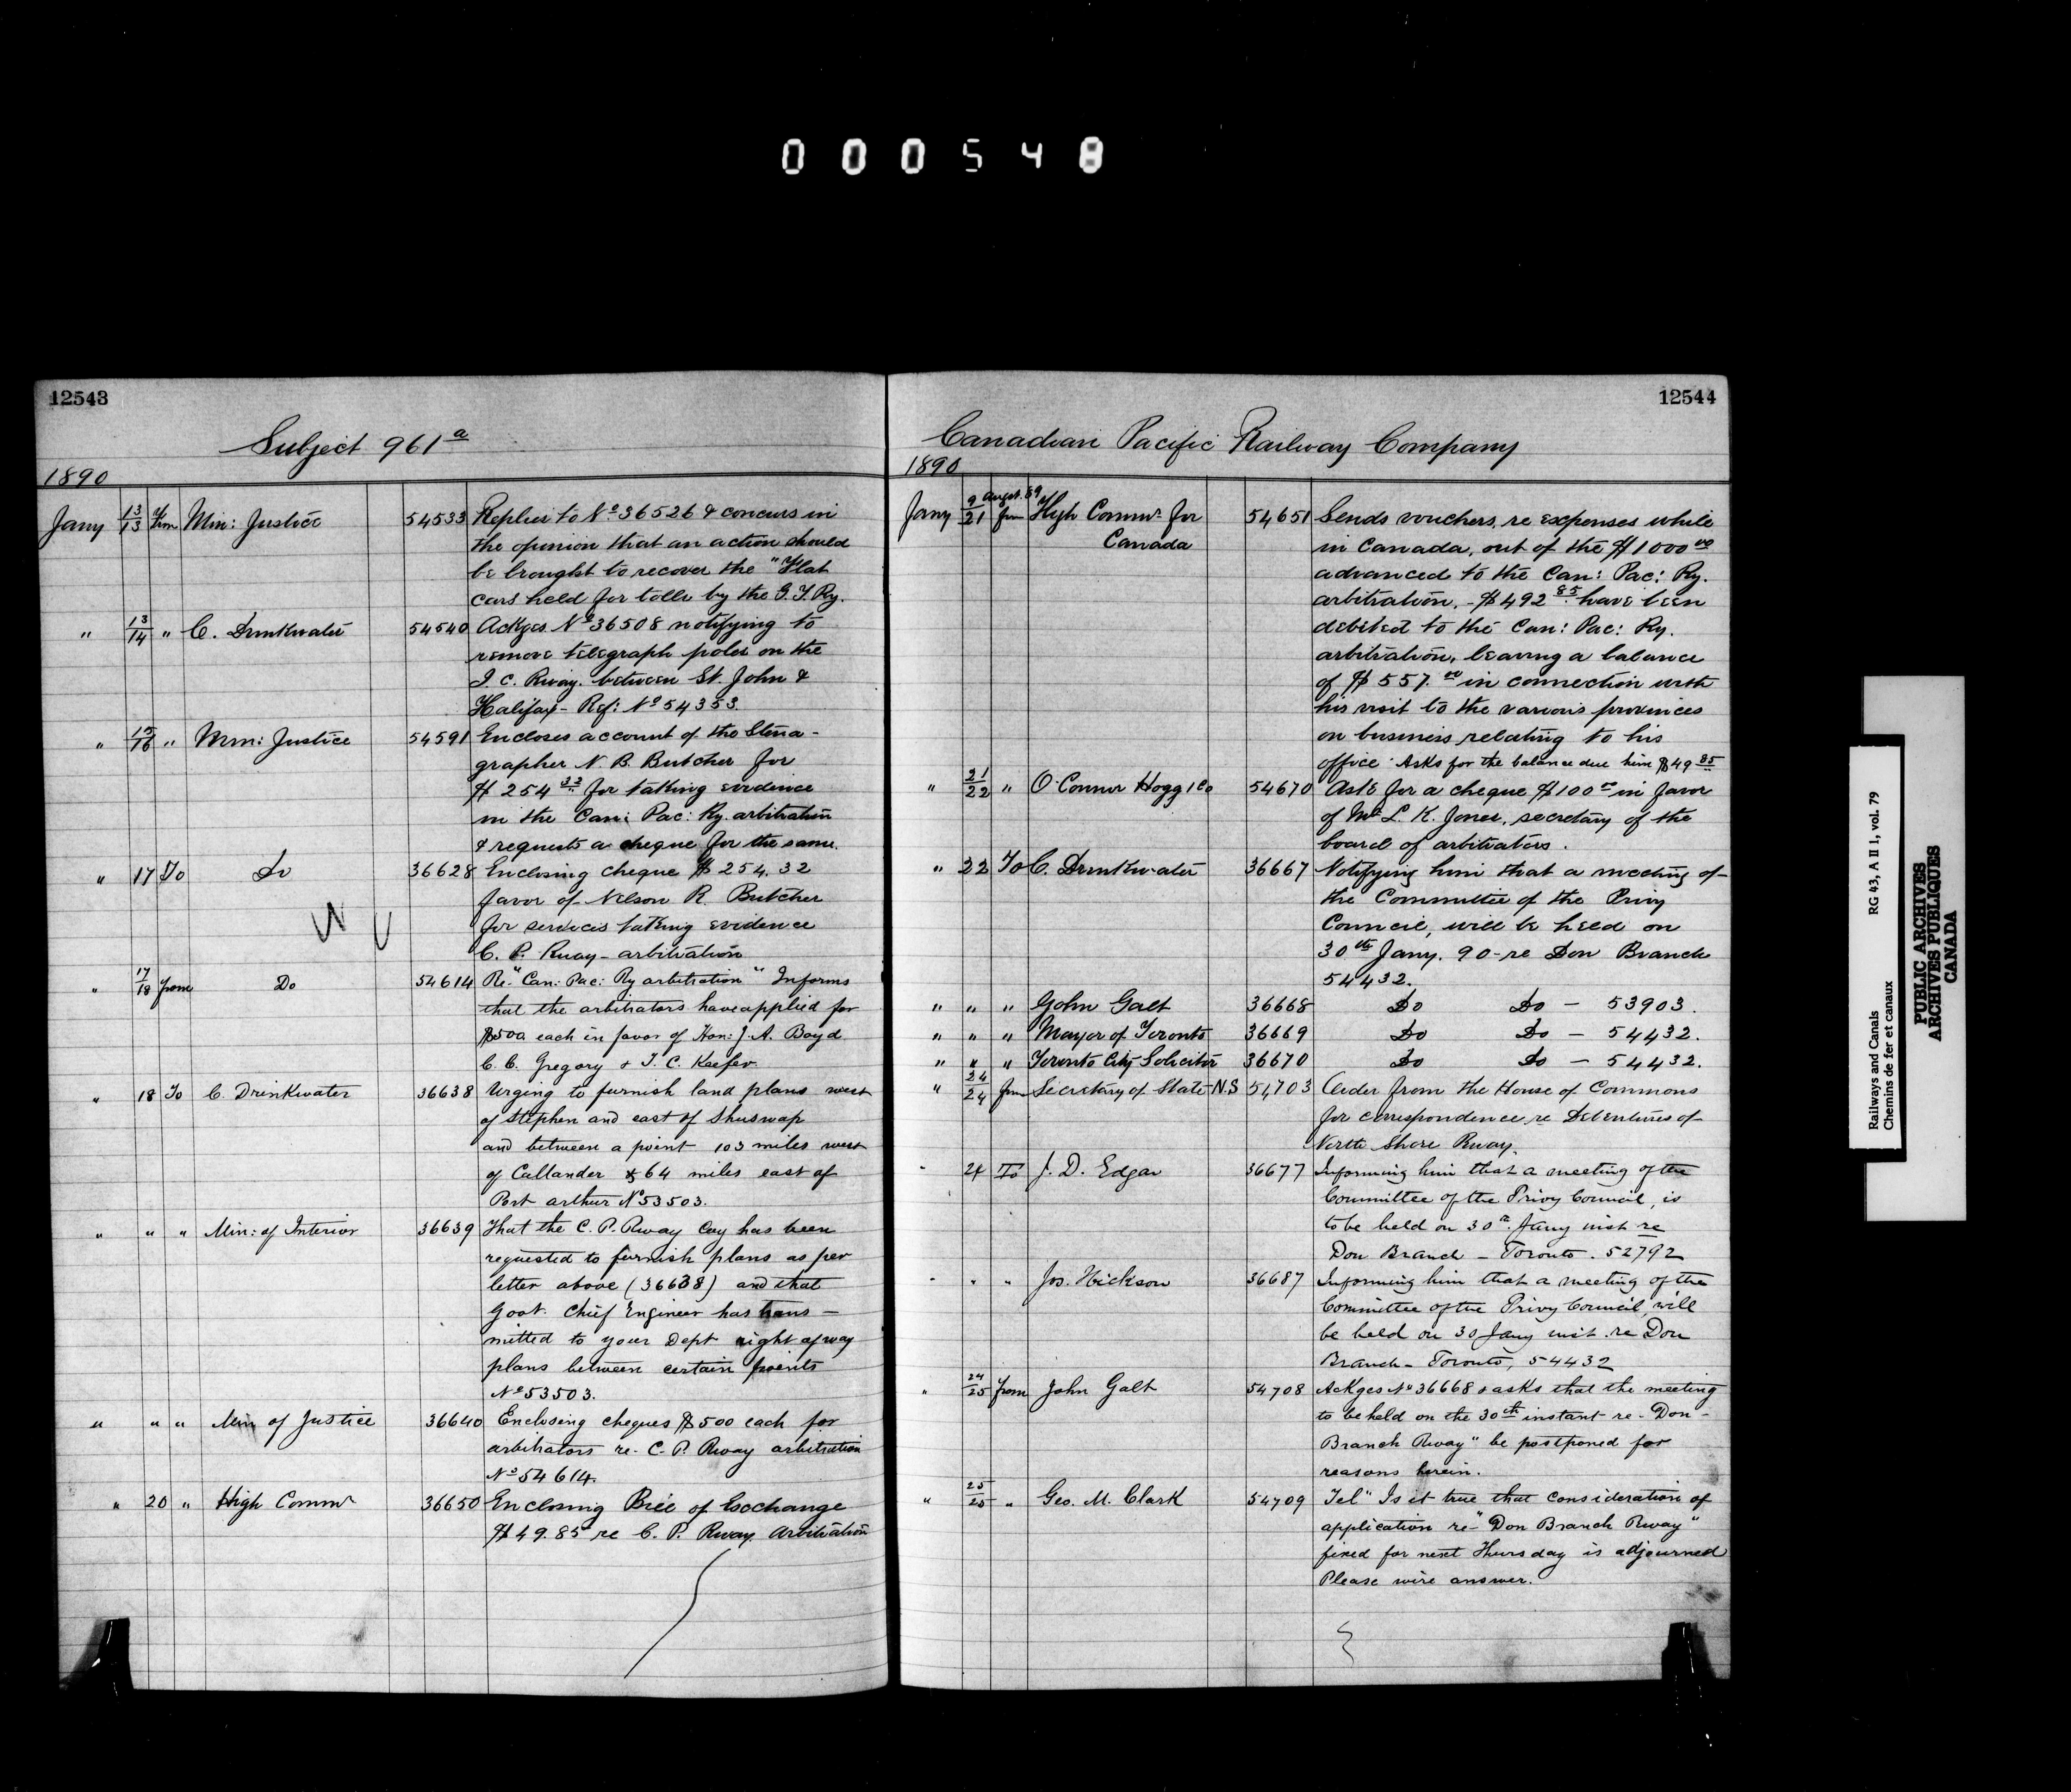 000548
12543
Subject 961a
1890
Jany 13/13 from Min: Justice 54533 Replies to No 36526 & concurs in
the opinion that an action should
be brought to recover the "Flat
cars held for tolls by the G.T.Ry.
" 13/14 " C. Drinkwater 54540 Ackges No 36508 notifying to
remove telegraph poles on the
I. C. Rway. between St. John &
Halifax - Ref: No 54353.
" 15/16 " Min: Justice 54591 Encloses account of the Steno-
grapher N. R. Butcher for
$ 254 32 for taking evidence
in the Can: Pac: Ry. arbitration
& requests a cheque for the same.
" 17 To Do 36628 Enclosing cheque $ 254.32
favor of Nelson R. Butcher
for services taking evidence
C. P. Rway - arbitration
" 17/18 from Do 54614 Re. "Can: Pac: Ry arbitration" Informs
that the arbitrators have applied for
$500 each in favor of Hon: J. A. Boyd
C. C. Gregory & T. C. Keefer
" 18 To C. Drinkwater 36638 Urging to furnish land plans west
of Stephen and east of Shuswap
and between a point 103 miles west
of Callander & 64 miles east of
Port arthur No 53503.
" " " Min: of Interior 36639 That the C. P. Rway Coy has been
requested to furnish plans as per
letter above (36638) and that
Govt. Chief Engineer has trans-
mitted to your Dept right of way
plans between certain points
No 53503.
" " " Min of Justice 36640 Enclosing cheques $500 each for
arbitrators re. C. P. Rway arbitration
No 54614.
" 20 " High Commr 36650 Enclosing Bill of Exchange
$49.85 re C. P. Rway. Arbitration
12544
Canadian Pacific Railway Company
1890
Jany 9 Augst. 89/21 from High Commr for 54651 Sends vouchers, re expenses while
Canada in Canada, out of the $1000 00
advanced to the Can: Pac: Ry.
arbitration. - $492 85 have been
debited to the Can: Pac: Ry.
arbitration, leaving a balance
of $557. 00 in connection with
his visit to the various provinces
on business relating to his
office. Asks for the balance due him $49 85
" 21/22 " O'Connor Hogg & Co 54670 Ask for a cheque $100 00 in favor
of Mr L. K. Jones, secretary of the
board of arbitrators.
" 22 To C. Drinkwater 36667 Notifying him that a meeting of
the Committee of the Privy
Council, will be held on
30th Jany. 90 - re Don Branch
54432.
" " " John Galt 36668 Do Do - 53903.
" " " Mayor of Toronto 36669 Do Do - 54432.
" " " Toronto City Solicitor 36670 Do Do - 54432.
" 24/24 from Secretary of State N.S 54703 Order from the House of Commons
for correspondence re Debentures of
North Shore Rway.
" 24 To J. D. Edgar 36677 Informing him that a meeting of the
Committee of the Privy Council, is
to be held on 30th Jany inst re
Don Branch - Toronto. 52792
" " " Jos. Hickson 36687 Informing him that a meeting of the
Committee of the Privy Council will
be held on 30 Jany inst. re Don
Branch - Toronto, 54432
" 24/25 from John Galt 54708 Ackges No 36668 & asks that the meeting
to be held on the 30th instant re - Don -
Branch Rway" be postponed for
reasons herein.
" 25/25 " Geo. M. Clark 54709 Tel" Is it true that consideration of
application re - "Don Branch Rway"
fixed for next Thursday is adjourned
Please wire answer.
Railways and Canals RG 43, A II 1, vol. 79
Chemins de fer et canaux
PUBLIC ARCHIVES
ARCHIVES PUBLIQUES
CANADA